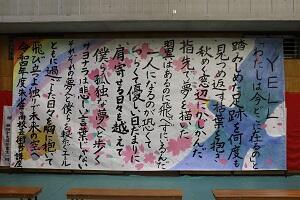 YELL
「わたし」は今どこに在るのと
踏みしめた足跡を何度も
見つめ返す枯葉を抱き
秋めく窓辺にかじかんだ
指先で夢を描いた
翼はあるのに飛べずにいるんだ
一人になるのが恐くて
つらくて優しい日だまりに
肩寄せる日々を越えて
僕ら孤独な夢へと歩く
サヨナラは悲しい言葉じゃない
それぞれの夢へと僕らを繋ぐエール
ともに過ごした日々を胸に抱いて
飛び立つよ独りで未来の空へ